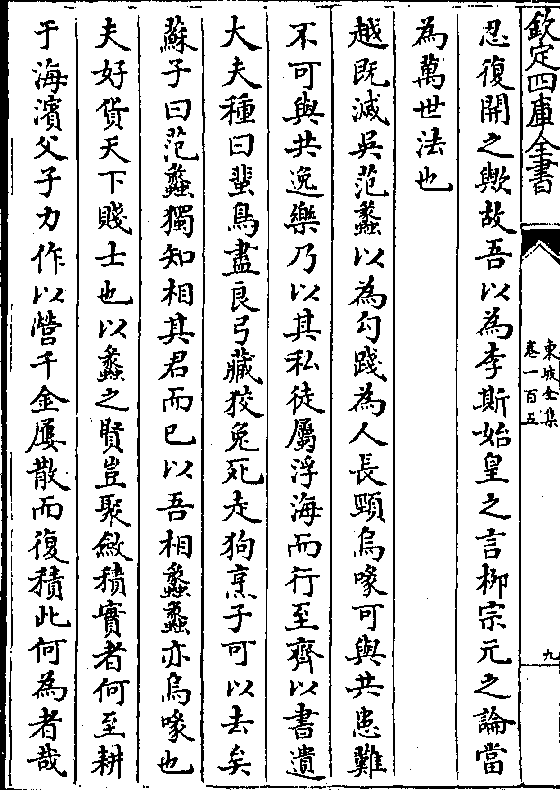 欽定四庫全書
東坡全集
卷一百五
九
忍復開之歟故吾以為李斯始皇之言柳宗元之論當
為萬世法也
越既滅吳范蠡以為勾踐為人長頸烏喙可與共患難
不可與共逸樂乃以其私徒屬浮海而行至齊以書遺
大夫種曰蜚鳥盡良弓藏狡兔死走狗烹子可以去矣
蘇子曰范蠡獨知相其君而已以吾相蠡蠡亦烏喙也
夫好貨天下賤士也以蠡之賢豈聚斂積實者何至耕
于海濱父子力作以營千金屢散而復積此何為者哉